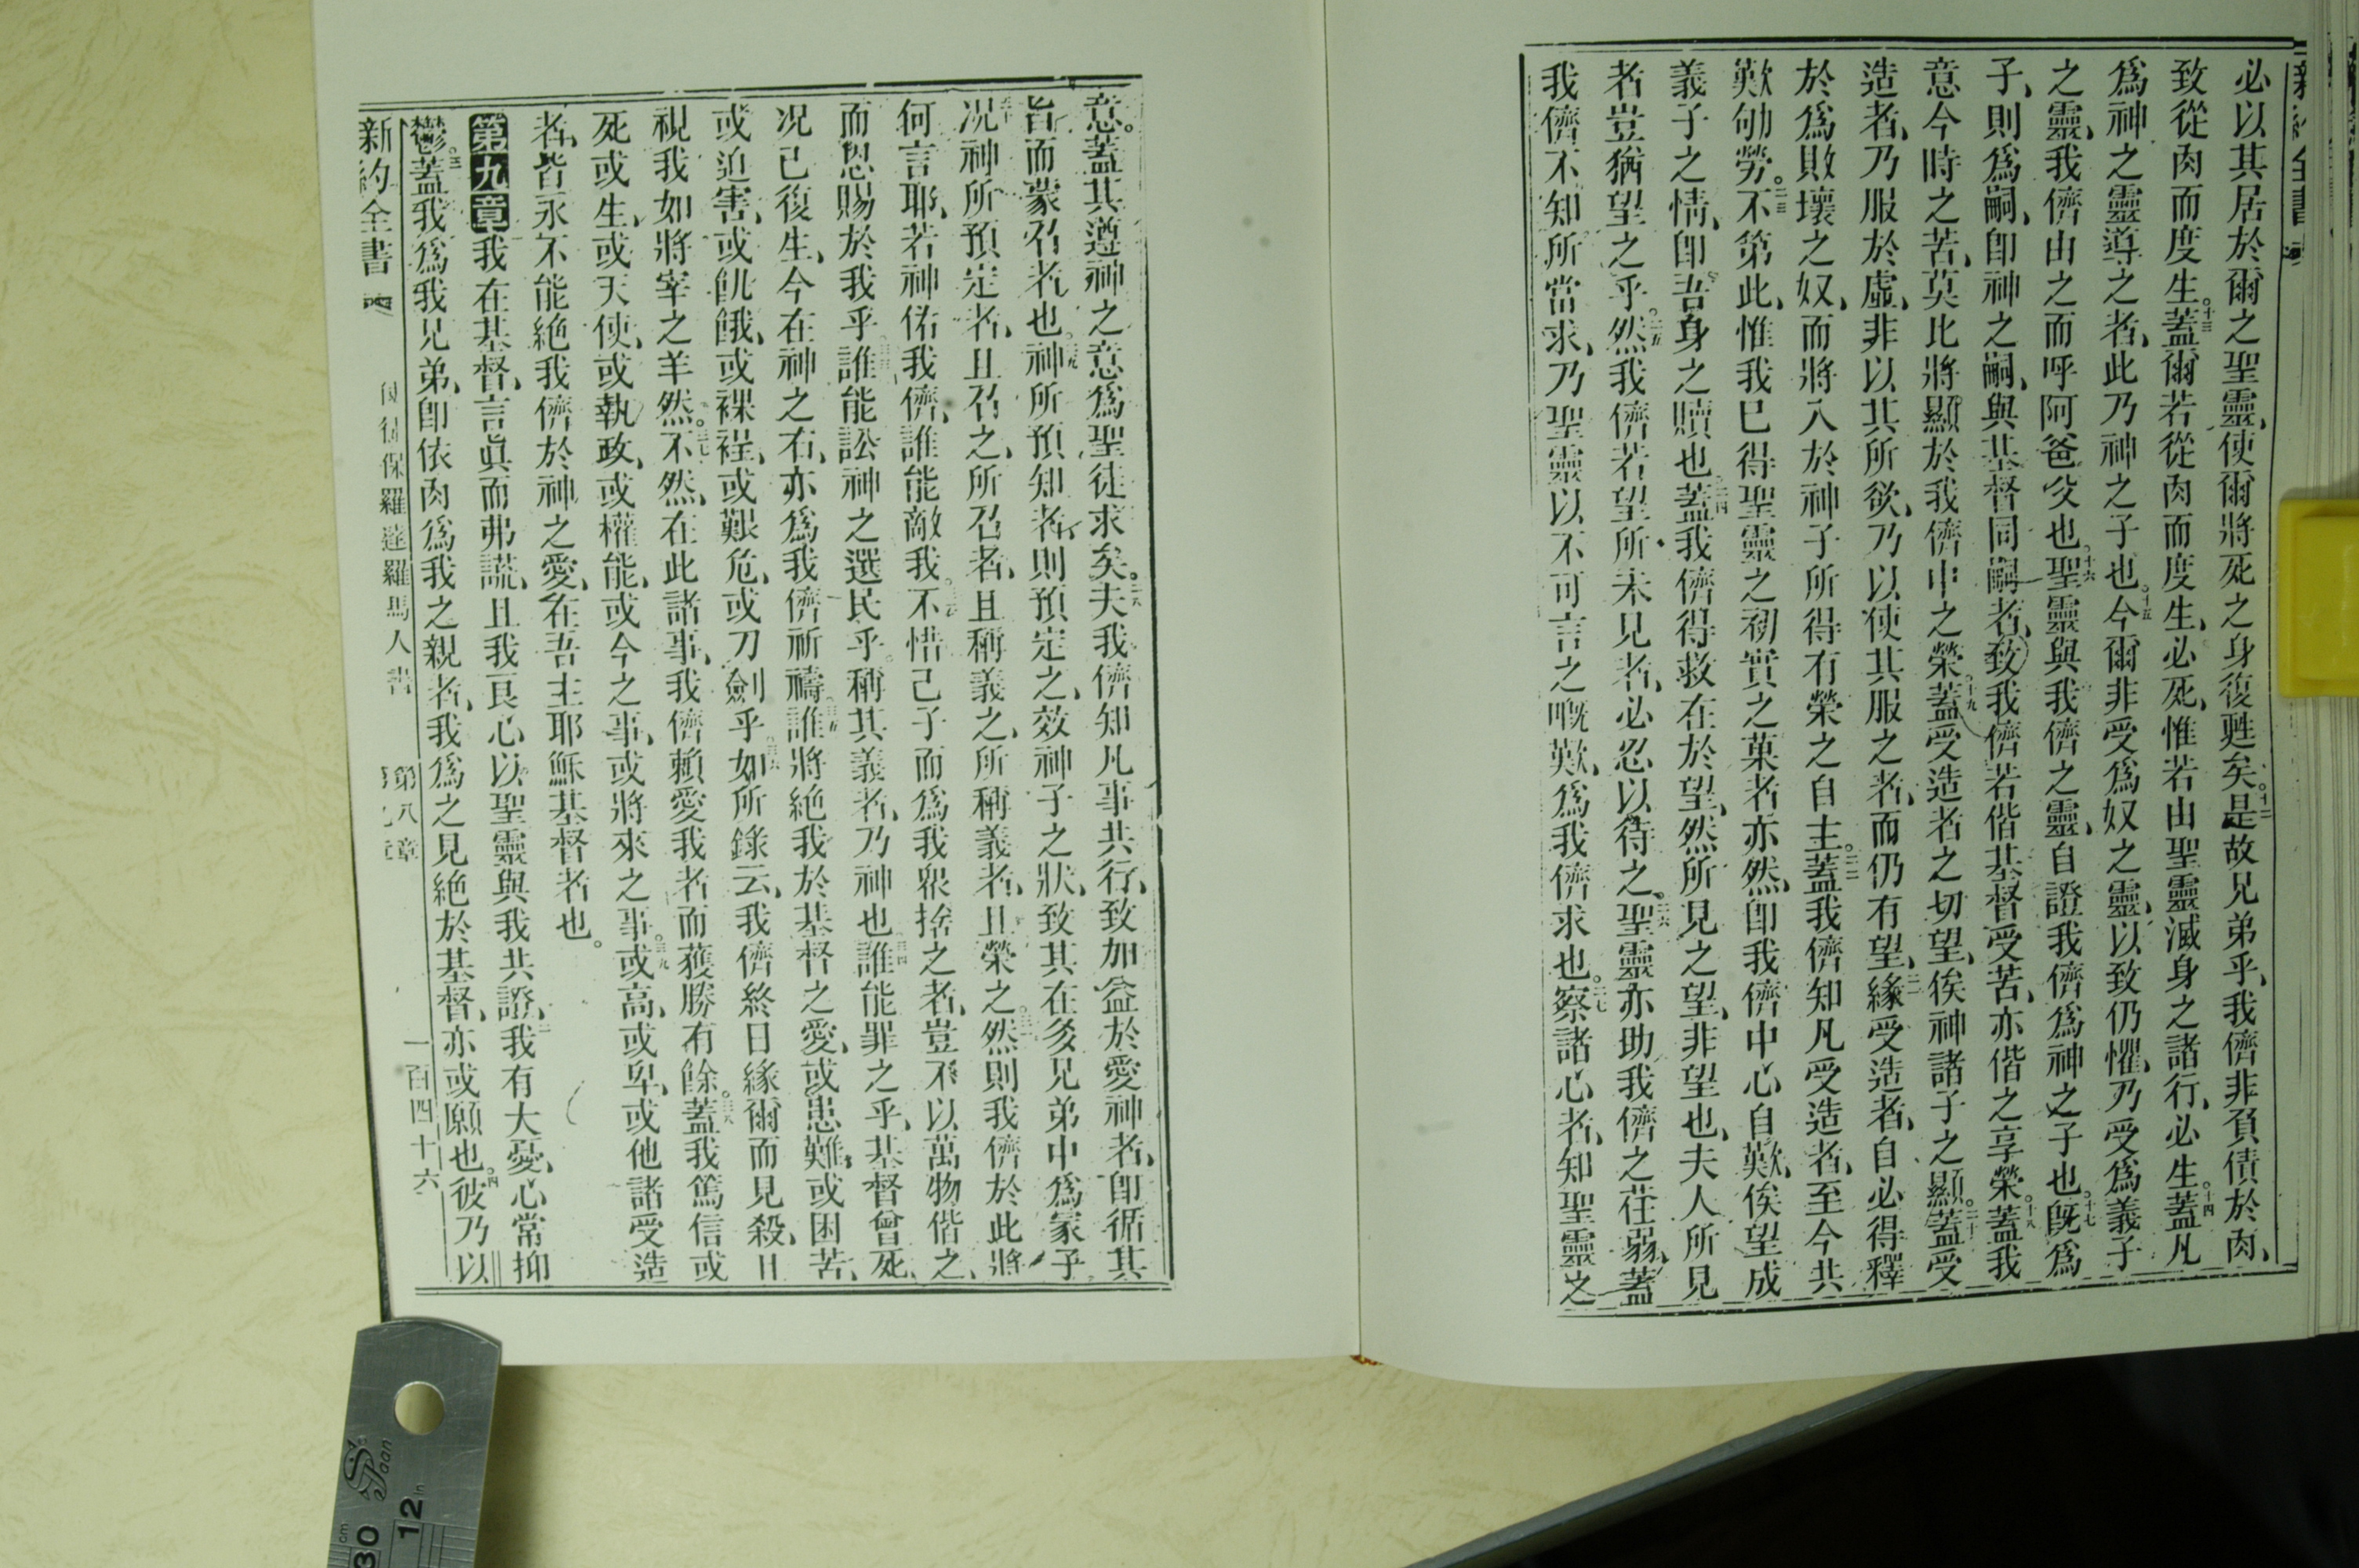 必以其居於爾之聖靈、使爾將死之身復甦矣。十二是故兄弟乎、我儕非負債於肉、
致從肉而度生。十三蓋爾若從肉而度生、必死、惟若由聖靈滅身之諸行、必生。十四蓋凡
爲神之靈導之者、此乃神之子也。十五今爾非受爲奴之靈、以致仍懼、乃受爲義子
之靈、我儕由之而呼阿爸父也。十六聖靈與我儕之靈、自證我儕爲神之子也。十七旣爲
子、則爲嗣、卽神之嗣、與基督同嗣者、致我儕若偕基督受苦、亦偕之享榮。十八蓋我
意今時之苦、莫比將顯於我儕中之榮。十九蓋受造者之切望、俟神諸子之顯。二十蓋受
造者、乃服於虛、非以其所欲、乃以使其服之者、而仍有望、二一緣受造者、自必得釋
於爲敗壞之奴、而將入於神子所得有榮之自主。二二蓋我儕知凡受造者、至今共
歎劬勞。二三不第此、惟我已得聖靈之初實之菓者亦然、卽我儕中心自歎、俟望成
義子之情、卽吾身之贖也。二四蓋我儕得救在於望、然所見之望、非望也、夫人所見
者豈猶望之乎。二五然我儕若望所未見者、必忍以待之。二六聖靈亦助我儕之荏弱、蓋
我儕不知所當求、乃聖靈以不可言之嘅歎、爲我儕求也。二七察諸心者、知聖靈之
意。蓋其遵神之意爲聖徒求矣。二八夫我儕知凡事共行、致加益於愛神者、卽循其
旨而蒙召者也。二九神所預知者、則預定之、效神子之狀、致其在多兄弟中爲冢子
况神所預定者、且召之、所召者、且稱義之、所稱義者、且榮之。三一然則我儕於此將
何言耶、若神佑我儕、誰能敵我。三二不惜己子而爲我衆捨之者、豈不以萬物偕之、
而恩賜於我乎。三三誰能訟神之選民乎。稱其義者、乃神也。三四誰能罪之乎、基督曾死、
况已復生、今在神之右、亦爲我儕祈禱。三五誰將絕我於基督之愛、或患難、或困苦、
或迫害、或飢餓、或裸裎、或艱危、或刀劍乎。三六如所錄云、我儕終日緣爾而見殺、且
視我如將宰之羊然。三七不然、在此諸事、我儕賴愛我者而獲勝有餘。三八蓋我篤信或
死或生、或天使、或執政、或權能、或今之事、或將來之事。三九或高、或卑、或他諸受造
者、皆永不能絕我儕於神之愛、在吾主耶穌基督者也。
第九章我在基督、言眞而弗謊、且我良心以聖靈與我共證、二我有大憂、心常抑
鬱。三蓋我爲我兄弟、卽依肉爲我之親者、我爲之見絕於基督、亦或願也。四彼乃以
新約全書 使徒保羅達羅馬人書 第八章 一百四十六
30
12